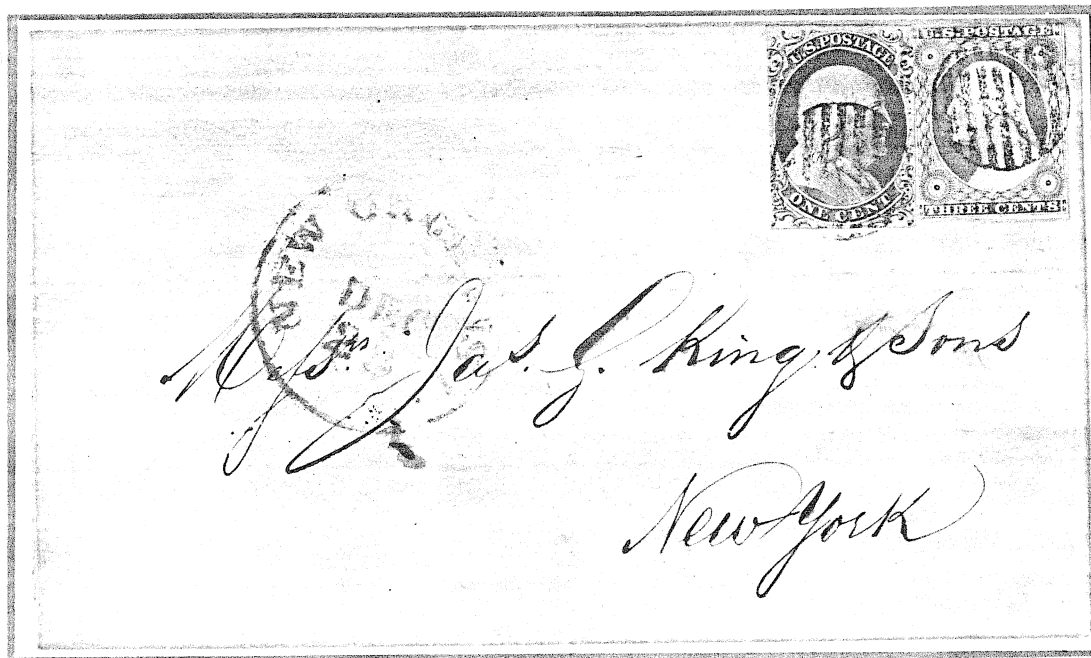 U.S. POSTAGE
ONE CENT
U.S. POSTAGE
THREE CENTS
NEW
DEC
Messrs. Jas. G. King & Sons
New York